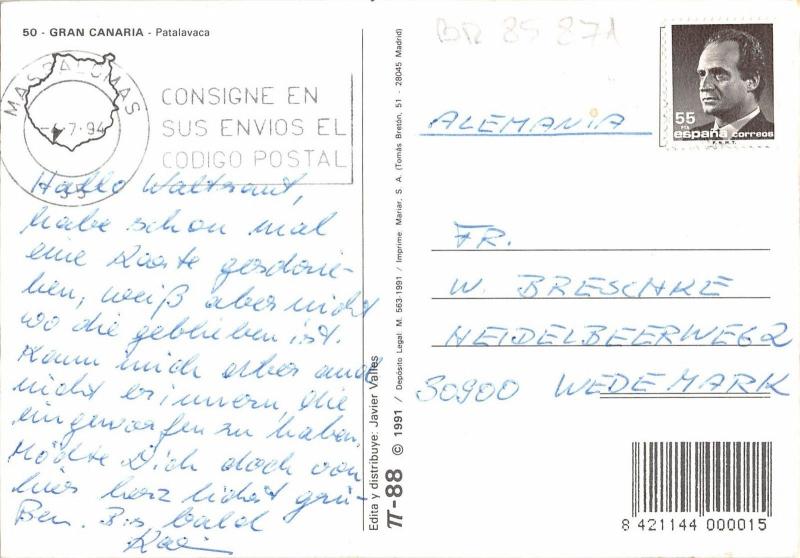 50 - GRAN CANARIA - Patalavaca
MASPALOMAS
-7-94
CONSIGNE EN
SUS ENVIOS EL
CODIGO POSTAL
Hallo Waltraut,
habe schon mal
eine Karte geschrie-
ben, weiß aber nicht
wo die geblieben ist.
Kann mich aber auch
nicht erinnern, die
eingeworfen zu haben.
Möchte Dich doch von
hier herzlichst grü-
ßen. Bis bald
Edita y distribuye: Javier Vallés
π-88 © 1991 / Depósito Legal: M. 563-1991 / Imprime Mariar, S. A. (Tomás Bretón, 51 - 28045 Madrid)
BR 85 871
55
PTA
españa correos
F.N.M.T.
ALEMANIA
FR.
W. BRESCHKE
HEIDELBEERWEG 2
30900 WEDEMARK
8 421144 000015